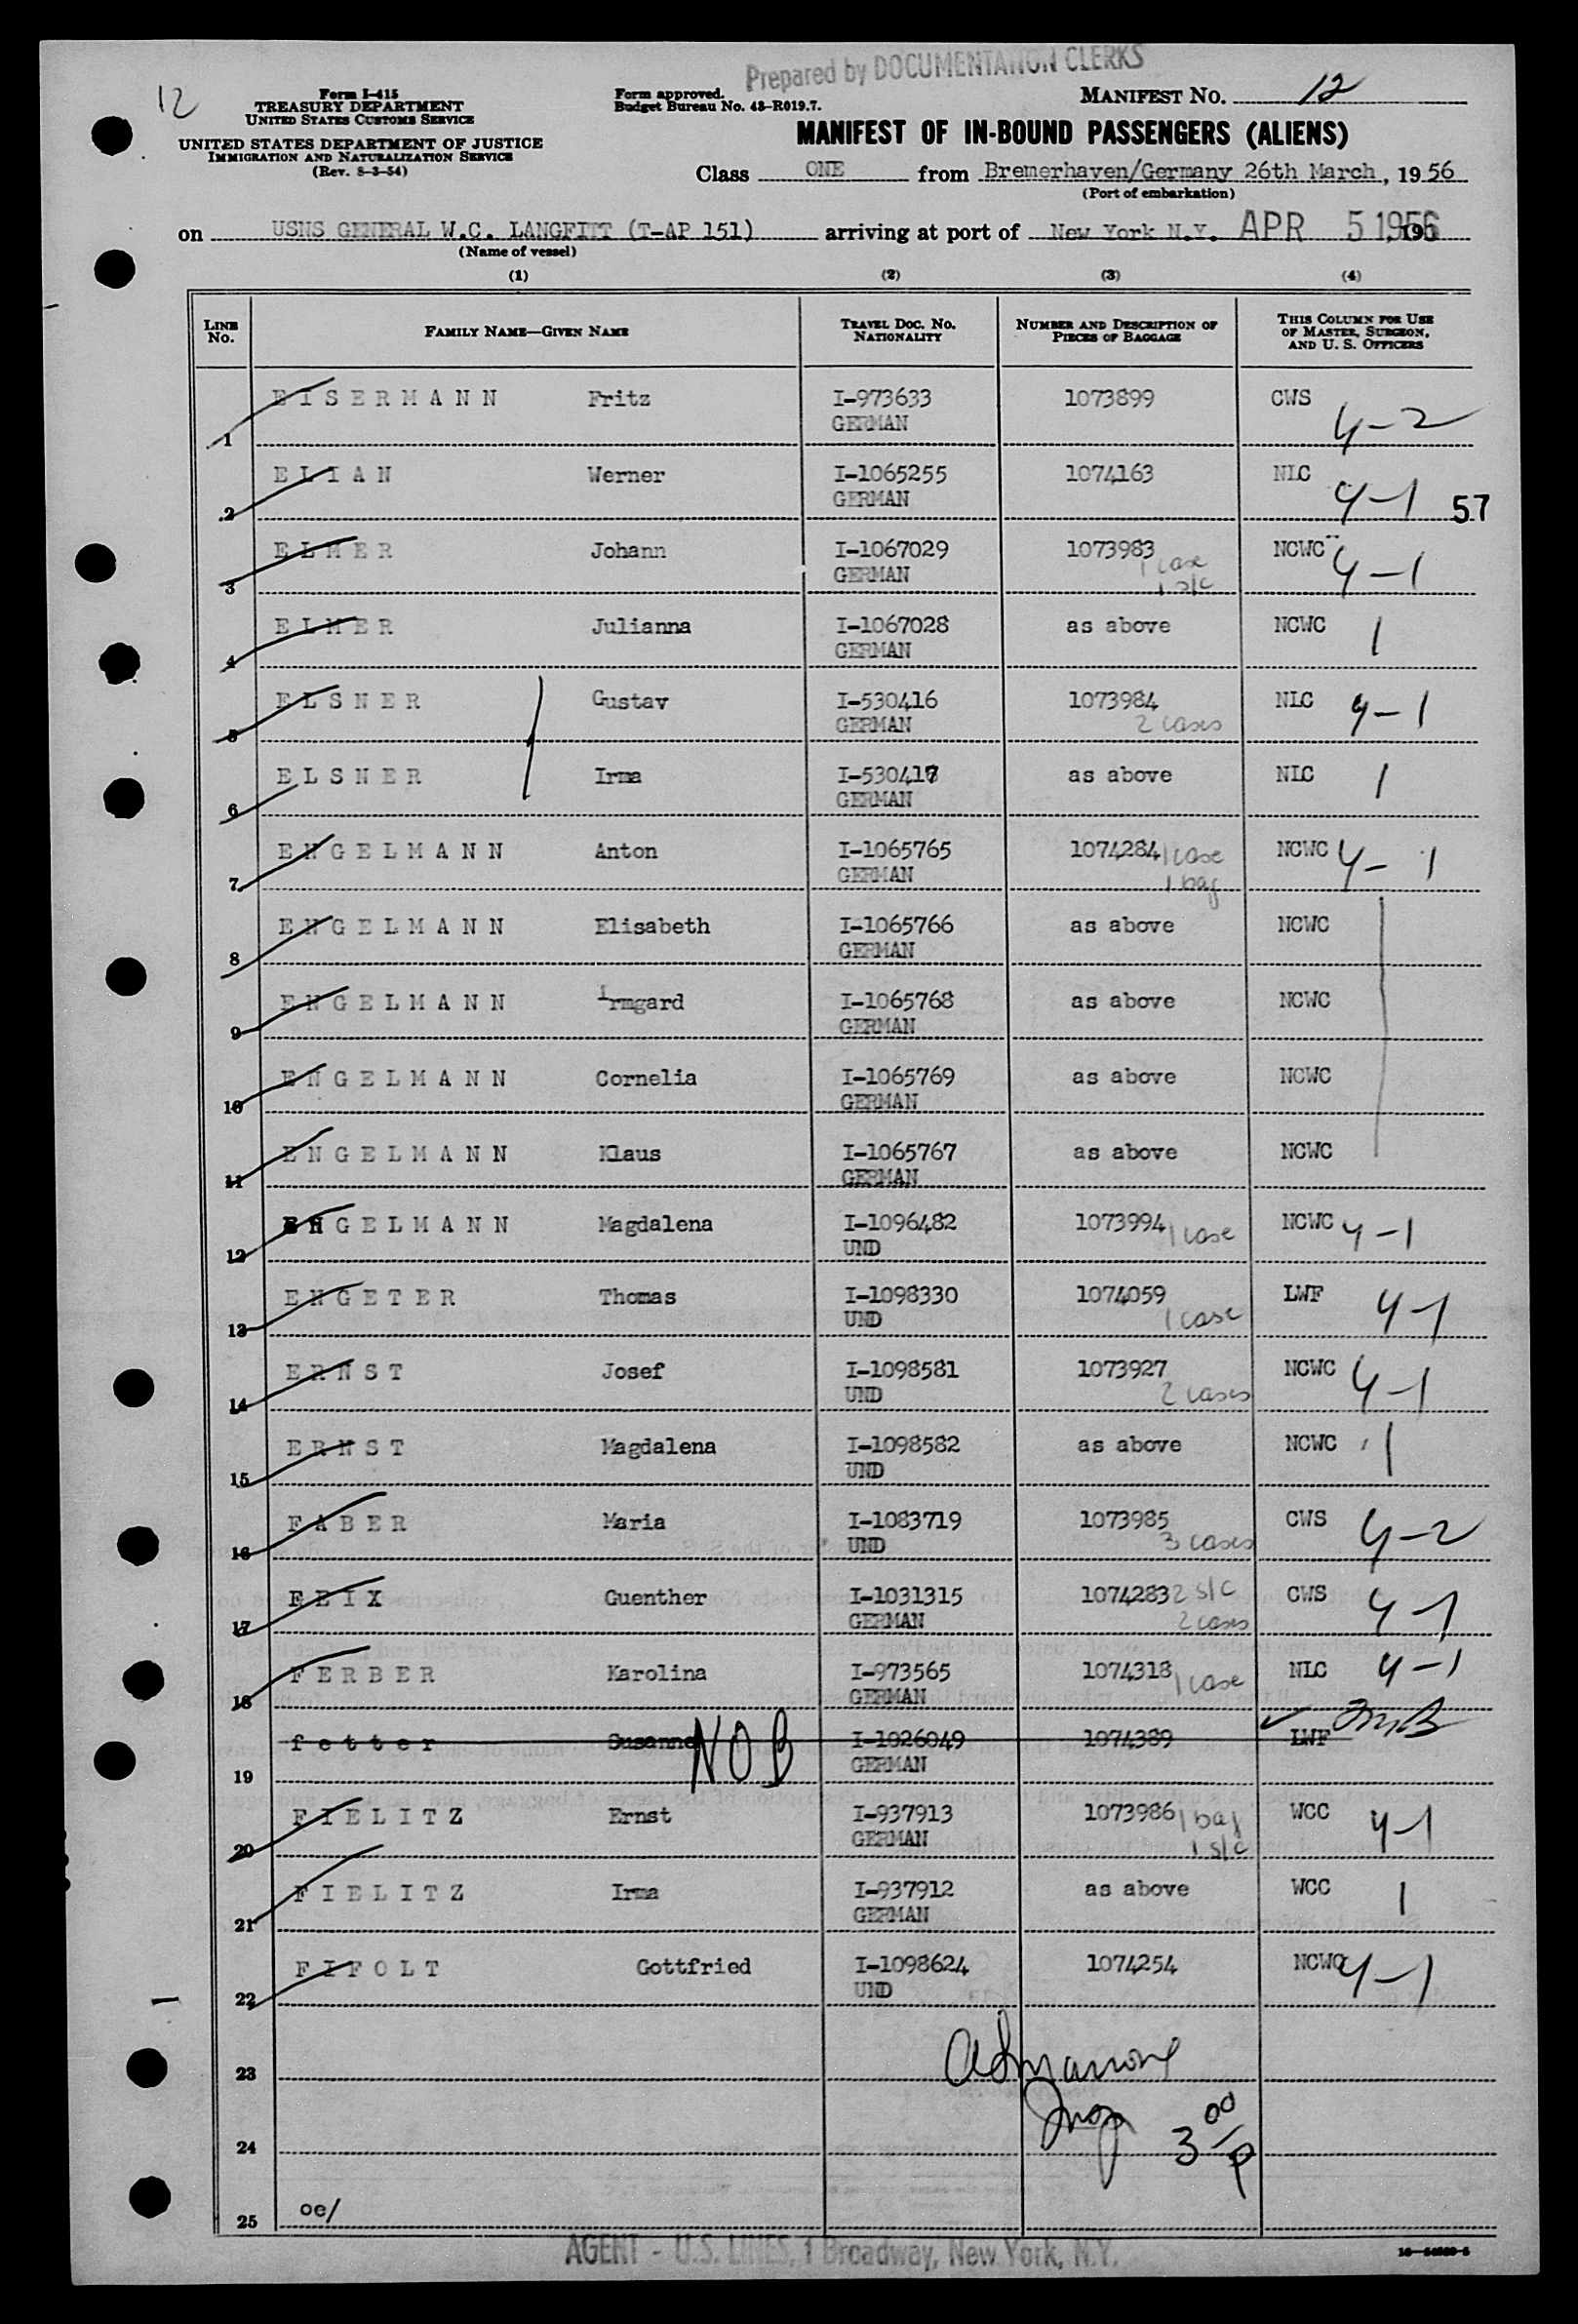 Prepared by DOCUMENTATION CLERKS
12
Form I-415
TREASURY DEPARTMENT
UNITED STATES CUSTOMS SERVICE
UNITED STATES DEPARTMENT OF JUSTICE
IMMIGRATION AND NATURALIZATION SERVICE
(Rev. 8-3-54)
Form approved.
Budget Bureau No. 43-R019.7.
MANIFEST NO. 12
MANIFEST OF IN-BOUND PASSENGERS (ALIENS)
Class ONE from Bremerhaven/Germany 26th March, 1956
(Port of embarkation)
on USNS GENERAL W.C. LANGFITT (T-AP 151) arriving at port of New York N.Y. APR 5 1956, 195
(Name of vessel)
(1) (2) (3) (4)
LINE No. FAMILY NAME—GIVEN NAME TRAVEL DOC. NO. NATIONALITY NUMBER AND DESCRIPTION OF PIECES OF BAGGAGE THIS COLUMN FOR USE OF MASTER, SURGEON, AND U. S. OFFICERS
1 EISERMANN Fritz I-973633 GERMAN 1073899 CWS 4-2
2 ELIAN Werner I-1065255 GERMAN 1074163 NLC 4-1 57
3 ELMER Johann I-1067029 GERMAN 1073983 1 case 1 s/c NCWC 4-1
4 ELMER Julianna I-1067028 GERMAN as above NCWC 1
5 ELSNER Gustav I-530416 GERMAN 1073984 2 cases NLC 4-1
6 ELSNER Irma I-530417 GERMAN as above NLC 1
7 ENGELMANN Anton I-1065765 GERMAN 1074284 1 case 1 bag NCWC 4-1
8 ENGELMANN Elisabeth I-1065766 GERMAN as above NCWC
9 ENGELMANN Irmgard I-1065768 GERMAN as above NCWC
10 ENGELMANN Cornelia I-1065769 GERMAN as above NCWC
11 ENGELMANN Klaus I-1065767 GERMAN as above NCWC
12 ENGELMANN Magdalena I-1096482 UND 1073994 1 case NCWC 4-1
13 ENGETER Thomas I-1098330 UND 1074059 1 case LWF 4-1
14 ERNST Josef I-1098581 UND 1073927 2 cases NCWC 4-1
15 ERNST Magdalena I-1098582 UND as above NCWC 1
16 FABER Maria I-1083719 UND 1073985 3 cases CWS 4-2
17 FEIX Guenther I-1031315 GERMAN 1074283 2 s/c 2 cases CWS 4-1
18 FERBER Karolina I-973565 GERMAN 1074318 1 case NLC 4-1
19 fetter Susanne NOB I-1026049 GERMAN 1074389 LWF
20 FIELITZ Ernst I-937913 GERMAN 1073986 1 bag 1 s/c WCC 4-1
21 FIELITZ Irma I-937912 GERMAN as above WCC 1
22 FIFOLT Gottfried I-1098624 UND 1074254 NCWC 4-1
23
24 3 00 P
25 oe/
AGENT - U.S. LINES, 1 Broadway, New York, N.Y.